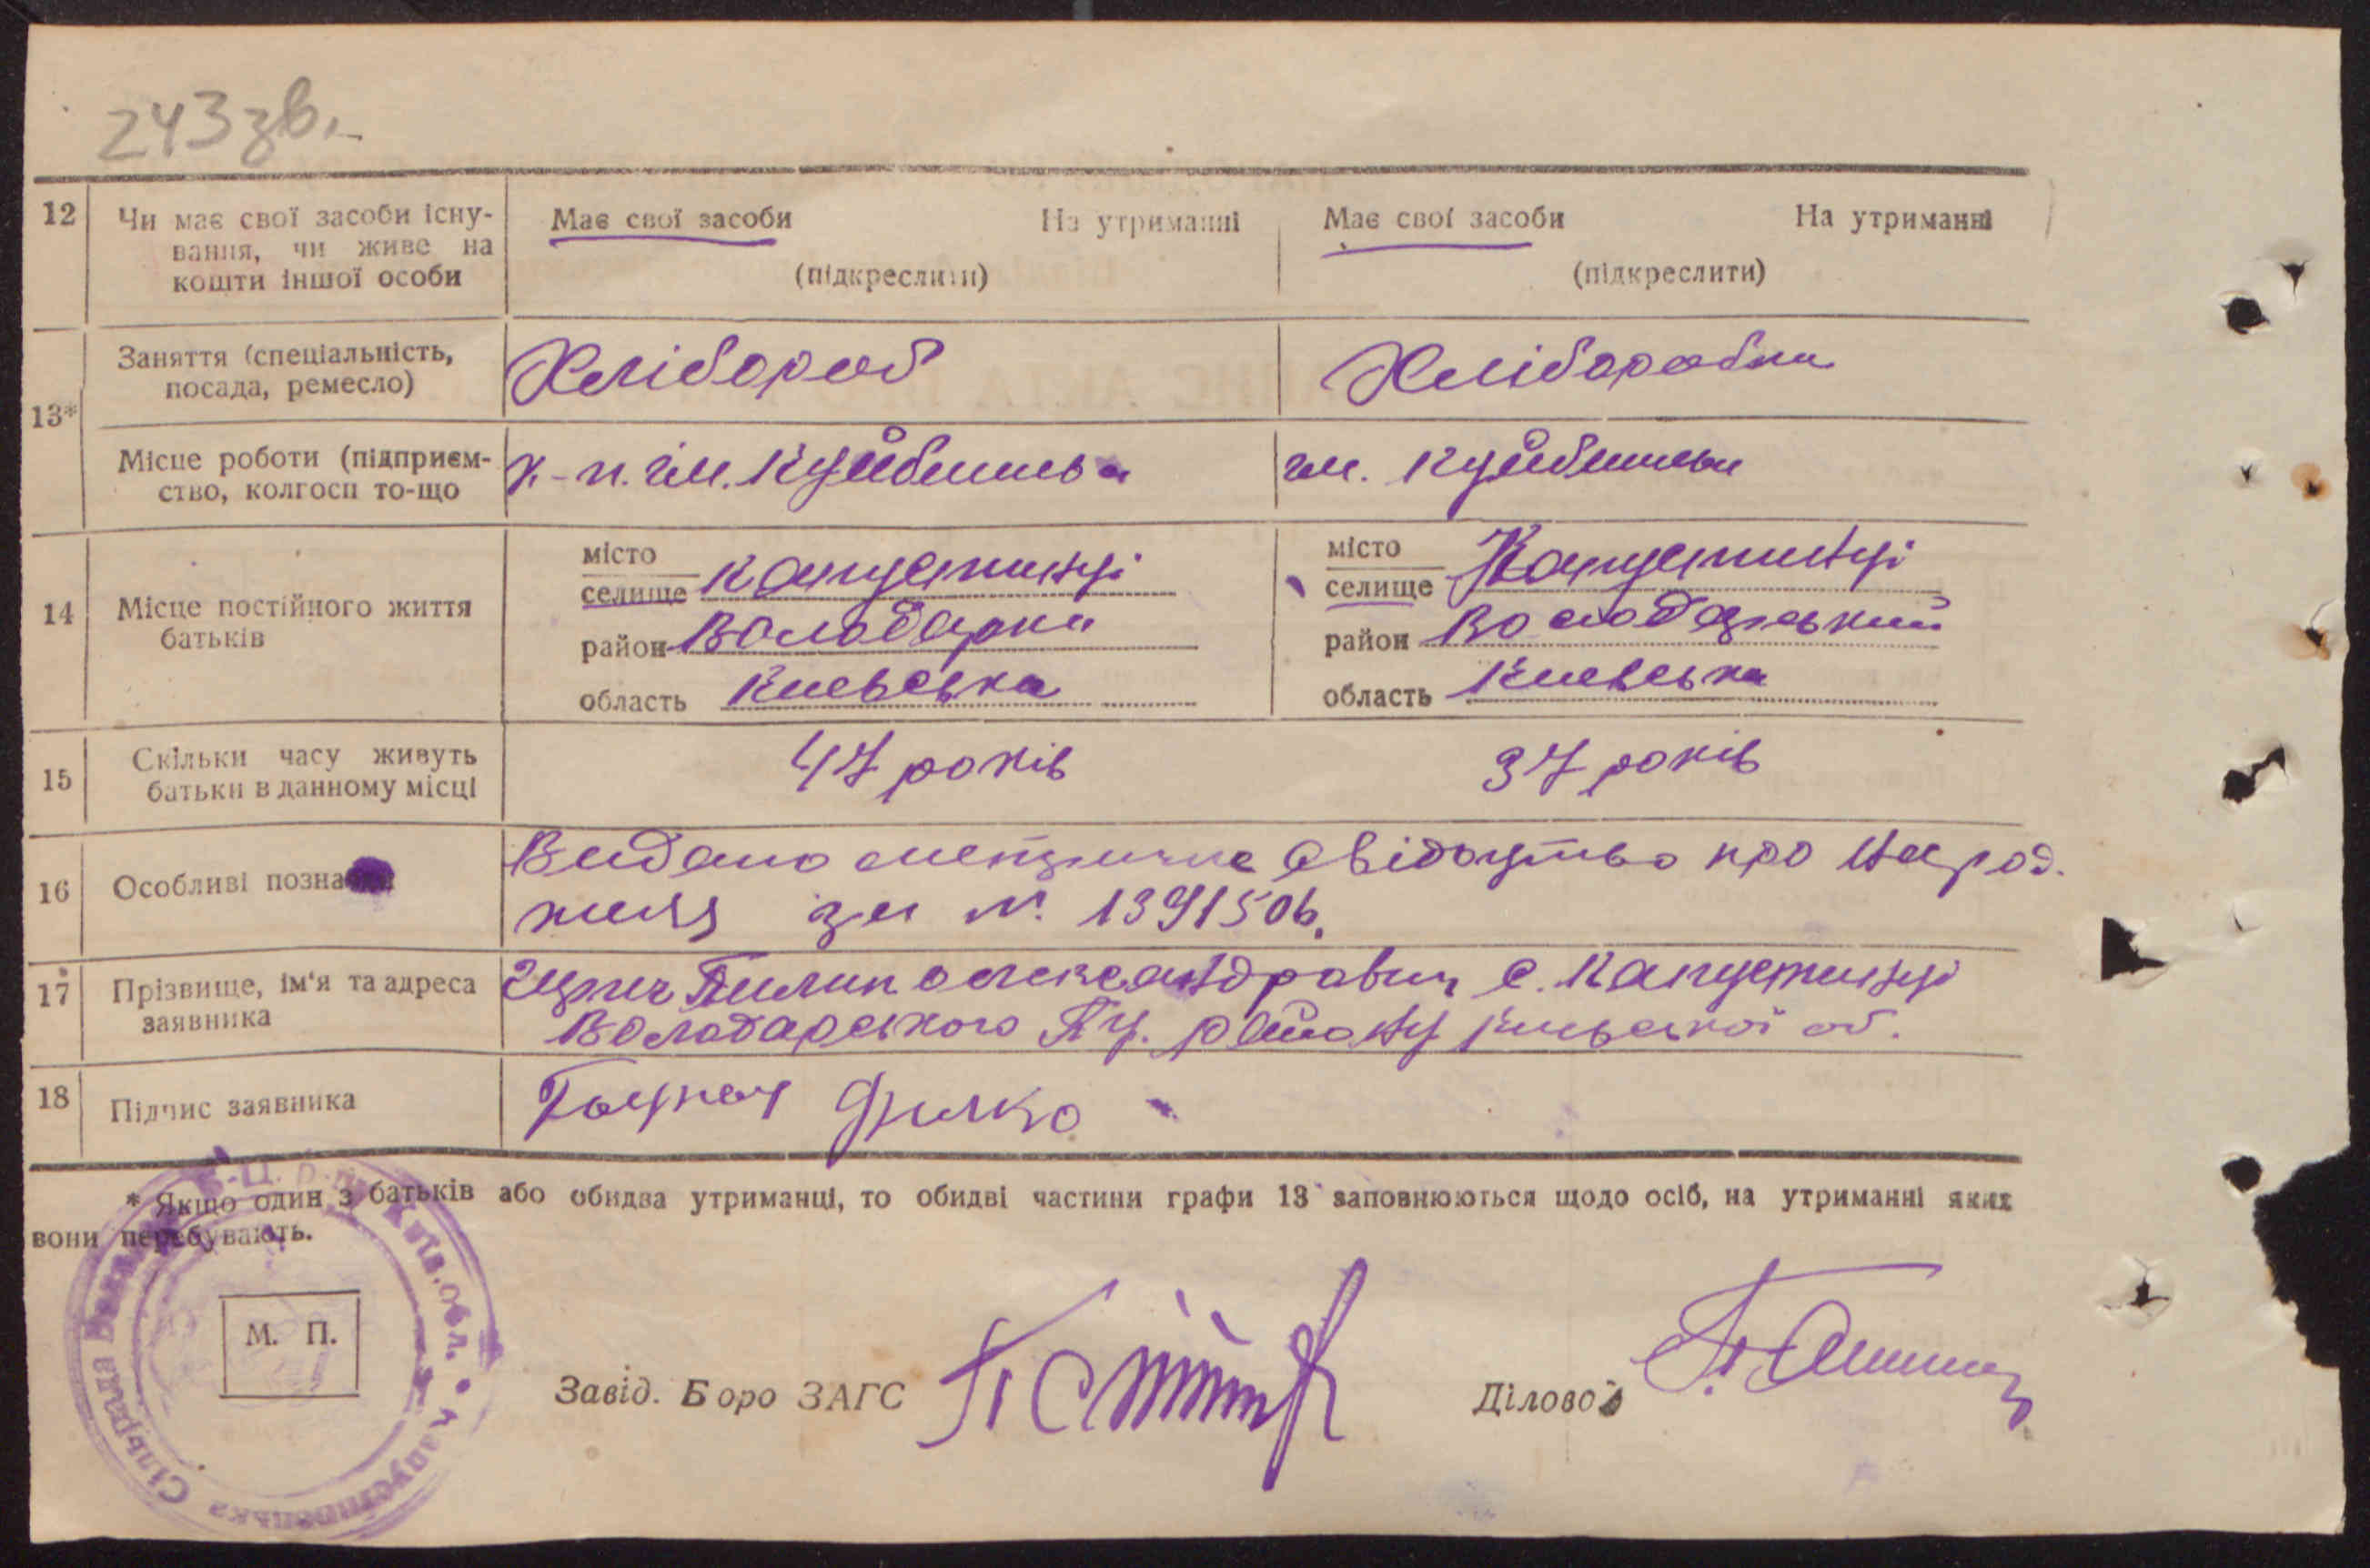 243 зв.
12 Чи має свої засоби існу- Має свої засоби На утриманні Має свої засоби На утриманні
вання, чи живе на
кошти іншої особи (підкреслити) (підкреслити)
13* Заняття (спеціальність, Хлібороб Хліборобка
посада, ремесло)
Місце роботи (підприєм- к-п. ім. Куйбишева ім. Куйбишева
ство, колгосп то-що
14 Місце постійного життя місто Капустинці місто Капустинці
батьків селище селище
район Володарка район Володарський
область Киевська область Киевська
15 Скільки часу живуть 47 років 37 років
батьки в данному місці
16 Особливі позна Видано метричне свідоцтво про народ.
ження за №. 1391506.
17 Прізвище, ім'я та адреса Пилип Олександрович с. Капустинці
заявника Володарського району Киевської об.
18 Підпис заявника
* Якщо один з батьків або обидва утриманці, то обидві частини графи 13 заповнюються щодо осіб, на утриманні яких
вони перебувають.
М. П.
Завід. Бюро ЗАГС Діловод
Київ. обл. Капустинецька Сільрада